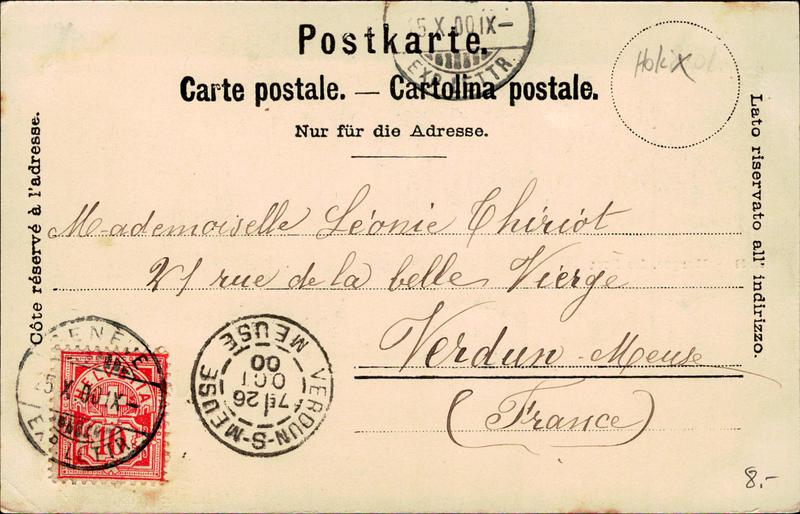 Postkarte.
Carte postale. — Cartolina postale.
Nur für die Adresse.
Côte réservé à l'adresse.
Lato riservato all' indirizzo.
Mademoiselle Léonie Thiriot
21 rue de la belle Vierge
Verdun - Meuse
(France)
5 X 00 IX –
EXP. LETTR.
GENEVE
25 X 00 IX –
EXP. LETTR.
HELVETIA
10
VERDUN-S-MEUSE
7E 26
OCT
00
MEUSE
8.-